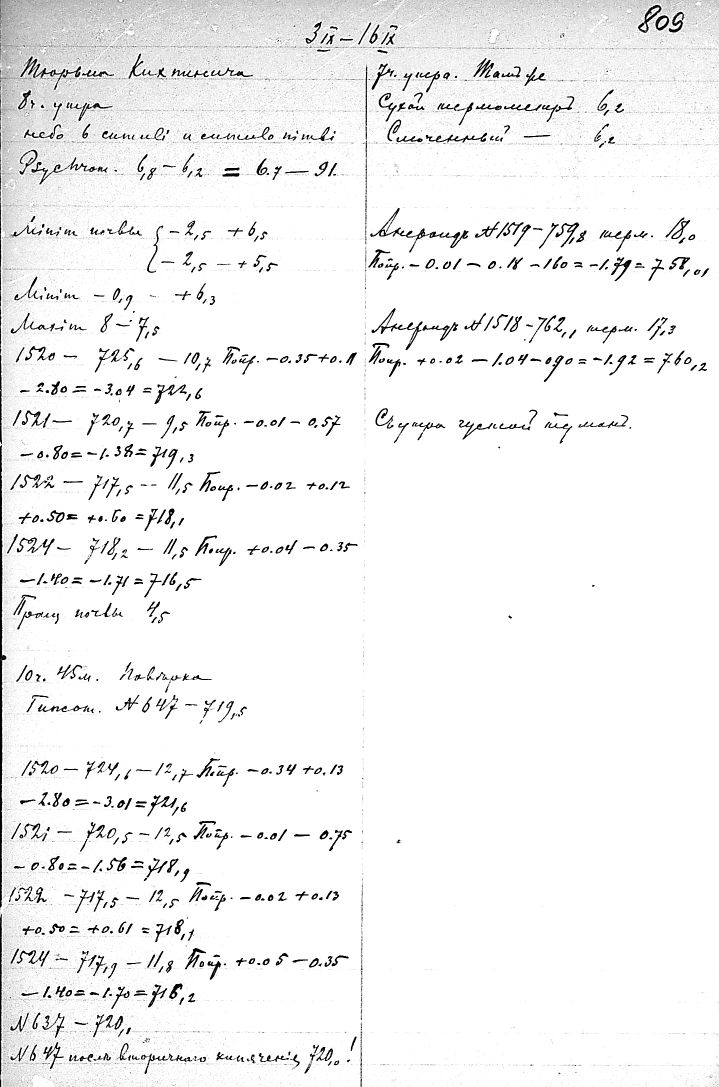 809
3 IX – 16 IX
Тюрьма Кихтинича
8ч. утра
небо в cumuli и cumulo nimbi
Psychrom. 6,8 – 6,2 = 6.7 – 91.
Minim почвы { – 2,5 + 6,5
– 2,5 – + 5,5
Minim – 0,9 – + 6,3
Maxim 8 – 7,5
1520 – 725,6 – 10,7 Попр. – 0.35 + 0.11
– 2.80 = – 3.04 = 722,6
1521 – 720,7 – 9,5 Попр. – 0.01 – 0.57
– 0.80 = – 1.38 = 719,3
1522 – 717,5 – 11,5 Попр. – 0.02 + 0.12
+ 0.50 = + 0.60 = 718,1
1524 – 718,2 – 11,5 Попр. + 0.04 – 0.35
– 1.40 = – 1.71 = 716,5
почвы 4,5
10ч. 45м. Повѣрка
Гипсот. N 647 – 719,5
1520 – 724,6 – 12,7 Попр. – 0.34 + 0.13
– 2.80 = – 3.01 = 721,6
1521 – 720,5 – 12,5 Попр. – 0.01 – 0.75
– 0.80 = – 1.56 = 718,9
1522 – 717,5 – 12,5 Попр. – 0.02 + 0.13
+ 0.50 = + 0.61 = 718,1
1524 – 717,9 – 11,8 Попр. + 0.05 – 0.35
– 1.40 = – 1.70 = 716,2
N 637 – 720,1
N 647 послѣ вторичного кипяченія 720,0!
7ч. утра.
Сухой термометръ 6,2
Смоченный — 6,2
Анероидъ N 1519 – 759,8 терм. 18,0
Попр. – 0.01 – 0.18 – 160 = – 1.79 = 758,01
Анероидъ N 1518 – 762,1 терм. 17,3
Попр. + 0.02 – 1.04 – 090 = – 1.92 = 760,2
Съ утра густой туманъ.